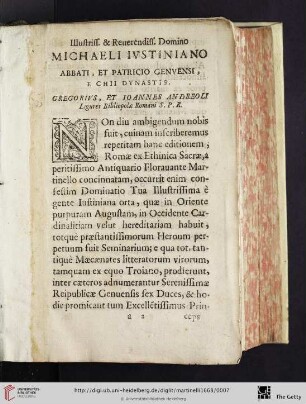 Illustriss. & Reuerendiss. Domino
MICHAELI IVSTINIANO
ABBATI, ET PATRICIO GENVENSI,
E CHII DYNASTIS.
GREGORIVS, ET IOANNES ANDREOLI
Ligures Bibliopolæ Romani S. P. R.
NOn diu ambigendum nobis
fuit, cuinam inscriberemus
repetitam hanc editionem,
Romæ ex Ethnica Sacræ, a
peritissimo Antiquario Florauante Mar-
tinello concinnatam, occurrit enim con-
festim Dominatio Tua Illustrissima è
gente Iustiniana orta, quæ in Oriente
purpuram Augustam, in Occidente Car-
dinalitiam velut hereditariam habuit,
totque præstantissimorum Heroum per-
petuum fuit Seminarium; e qua tot, tan-
tique Mæcænates litteratorum virorum,
tamquam ex equo Troiano, prodierunt,
inter cæteros adnumerantur Serenissimæ
Reipublicæ Genuensis sex Duces, & ho-
die promicant tum Excellẽtissimus Prin-
a 2
http://digi.ub.uni-heidelberg.de/diglit/martinelli1663/0007
© Universitätsbibliothek Heidelberg
The Getty